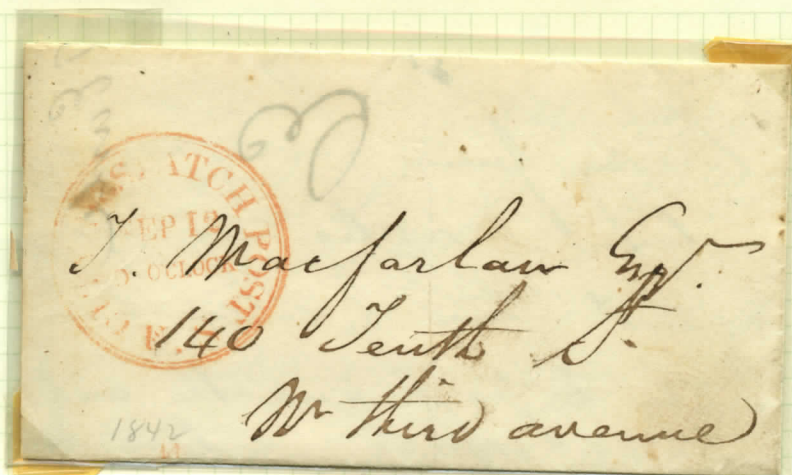 DESPATCH POST
SEP 12
O'CLOCK
T. Macfarlan Esqr.
140 Tenth St.
Nr third avenue
1842